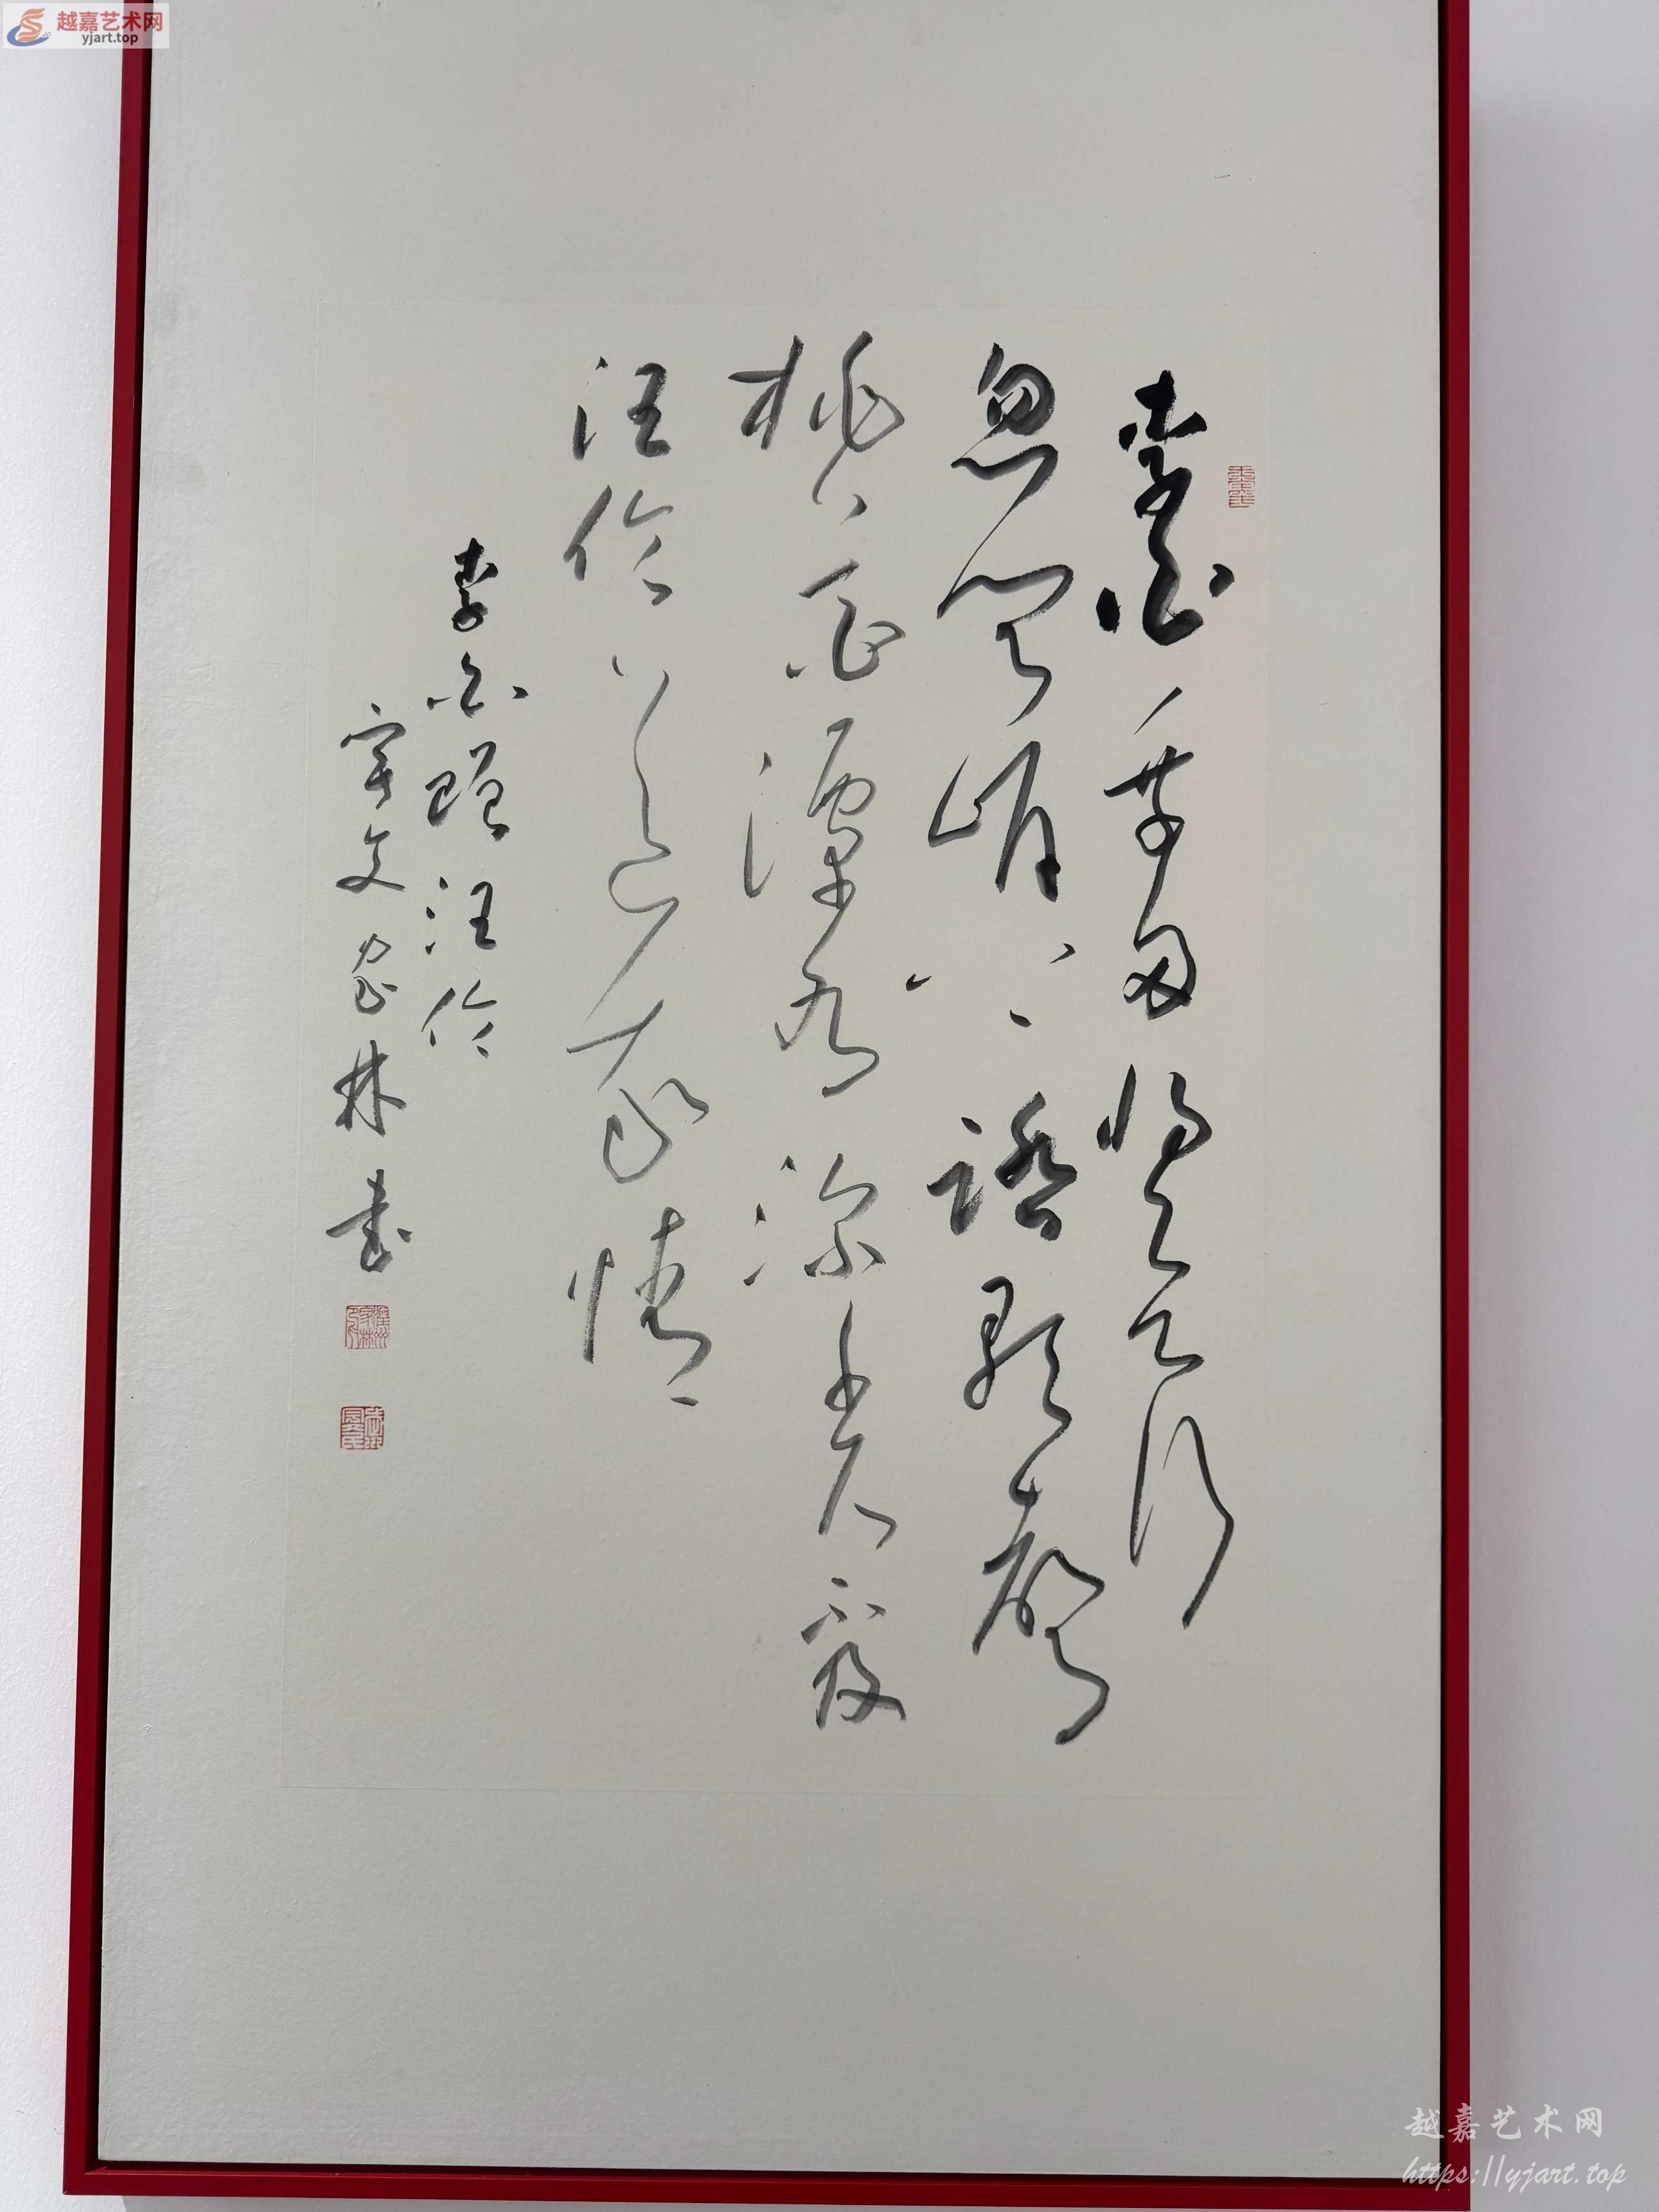 越嘉艺术网
yjart.top
李白乘舟將欲行
忽聞岸上踏歌聲
桃花潭水深千尺不及
汪倫送我情
李白贈汪倫
宇文家林書
越嘉艺术网
https://yjart.top